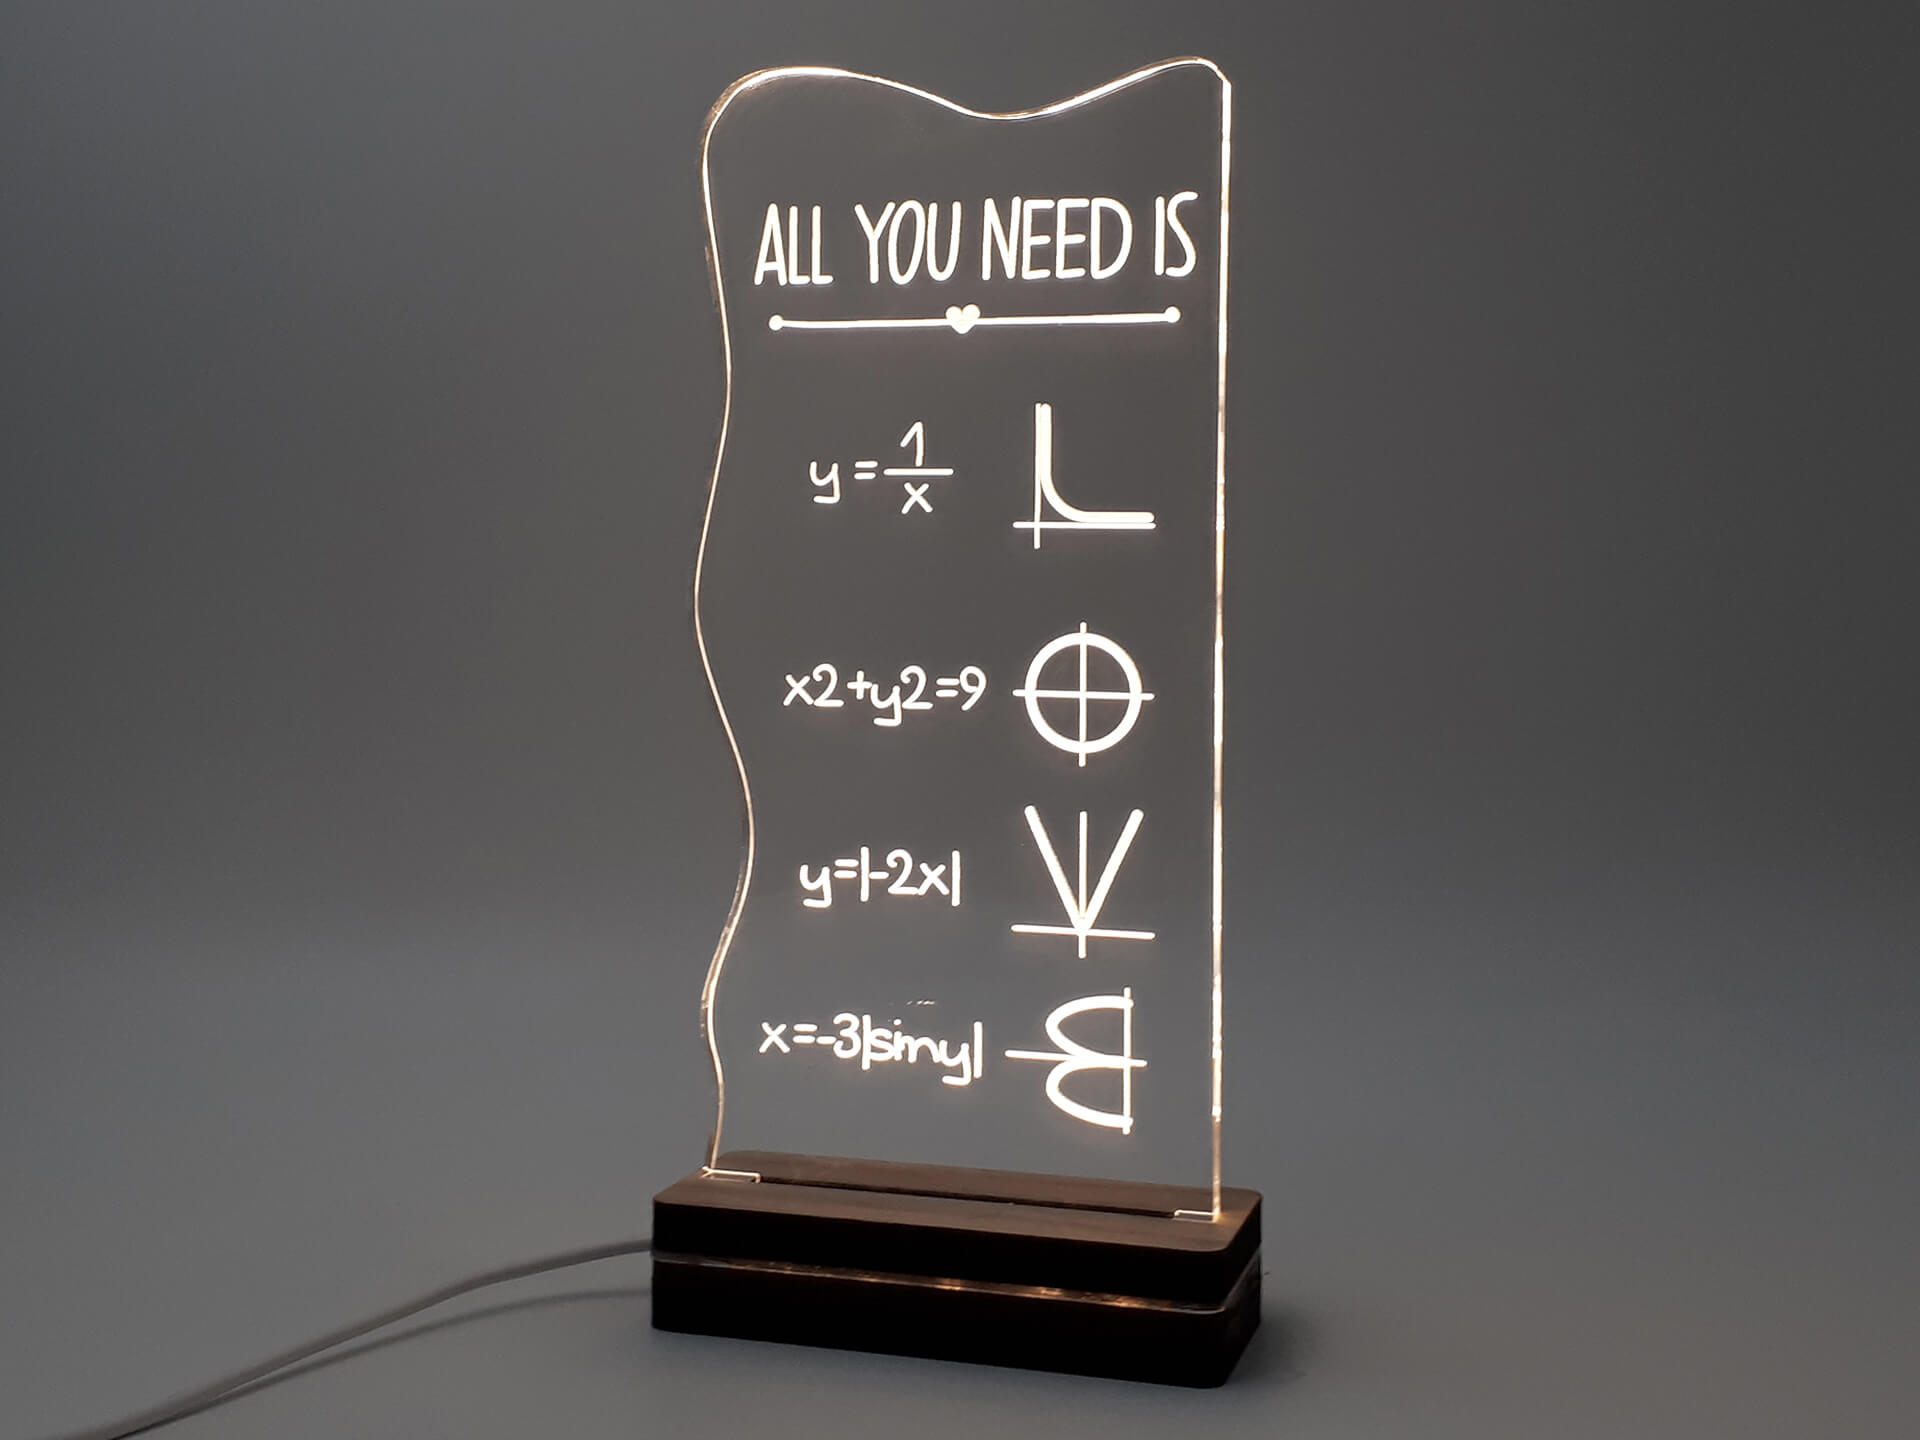 ALL YOU NEED IS
y = 1/x
x2+y2=9
y=|-2x|
x=-3|siny|